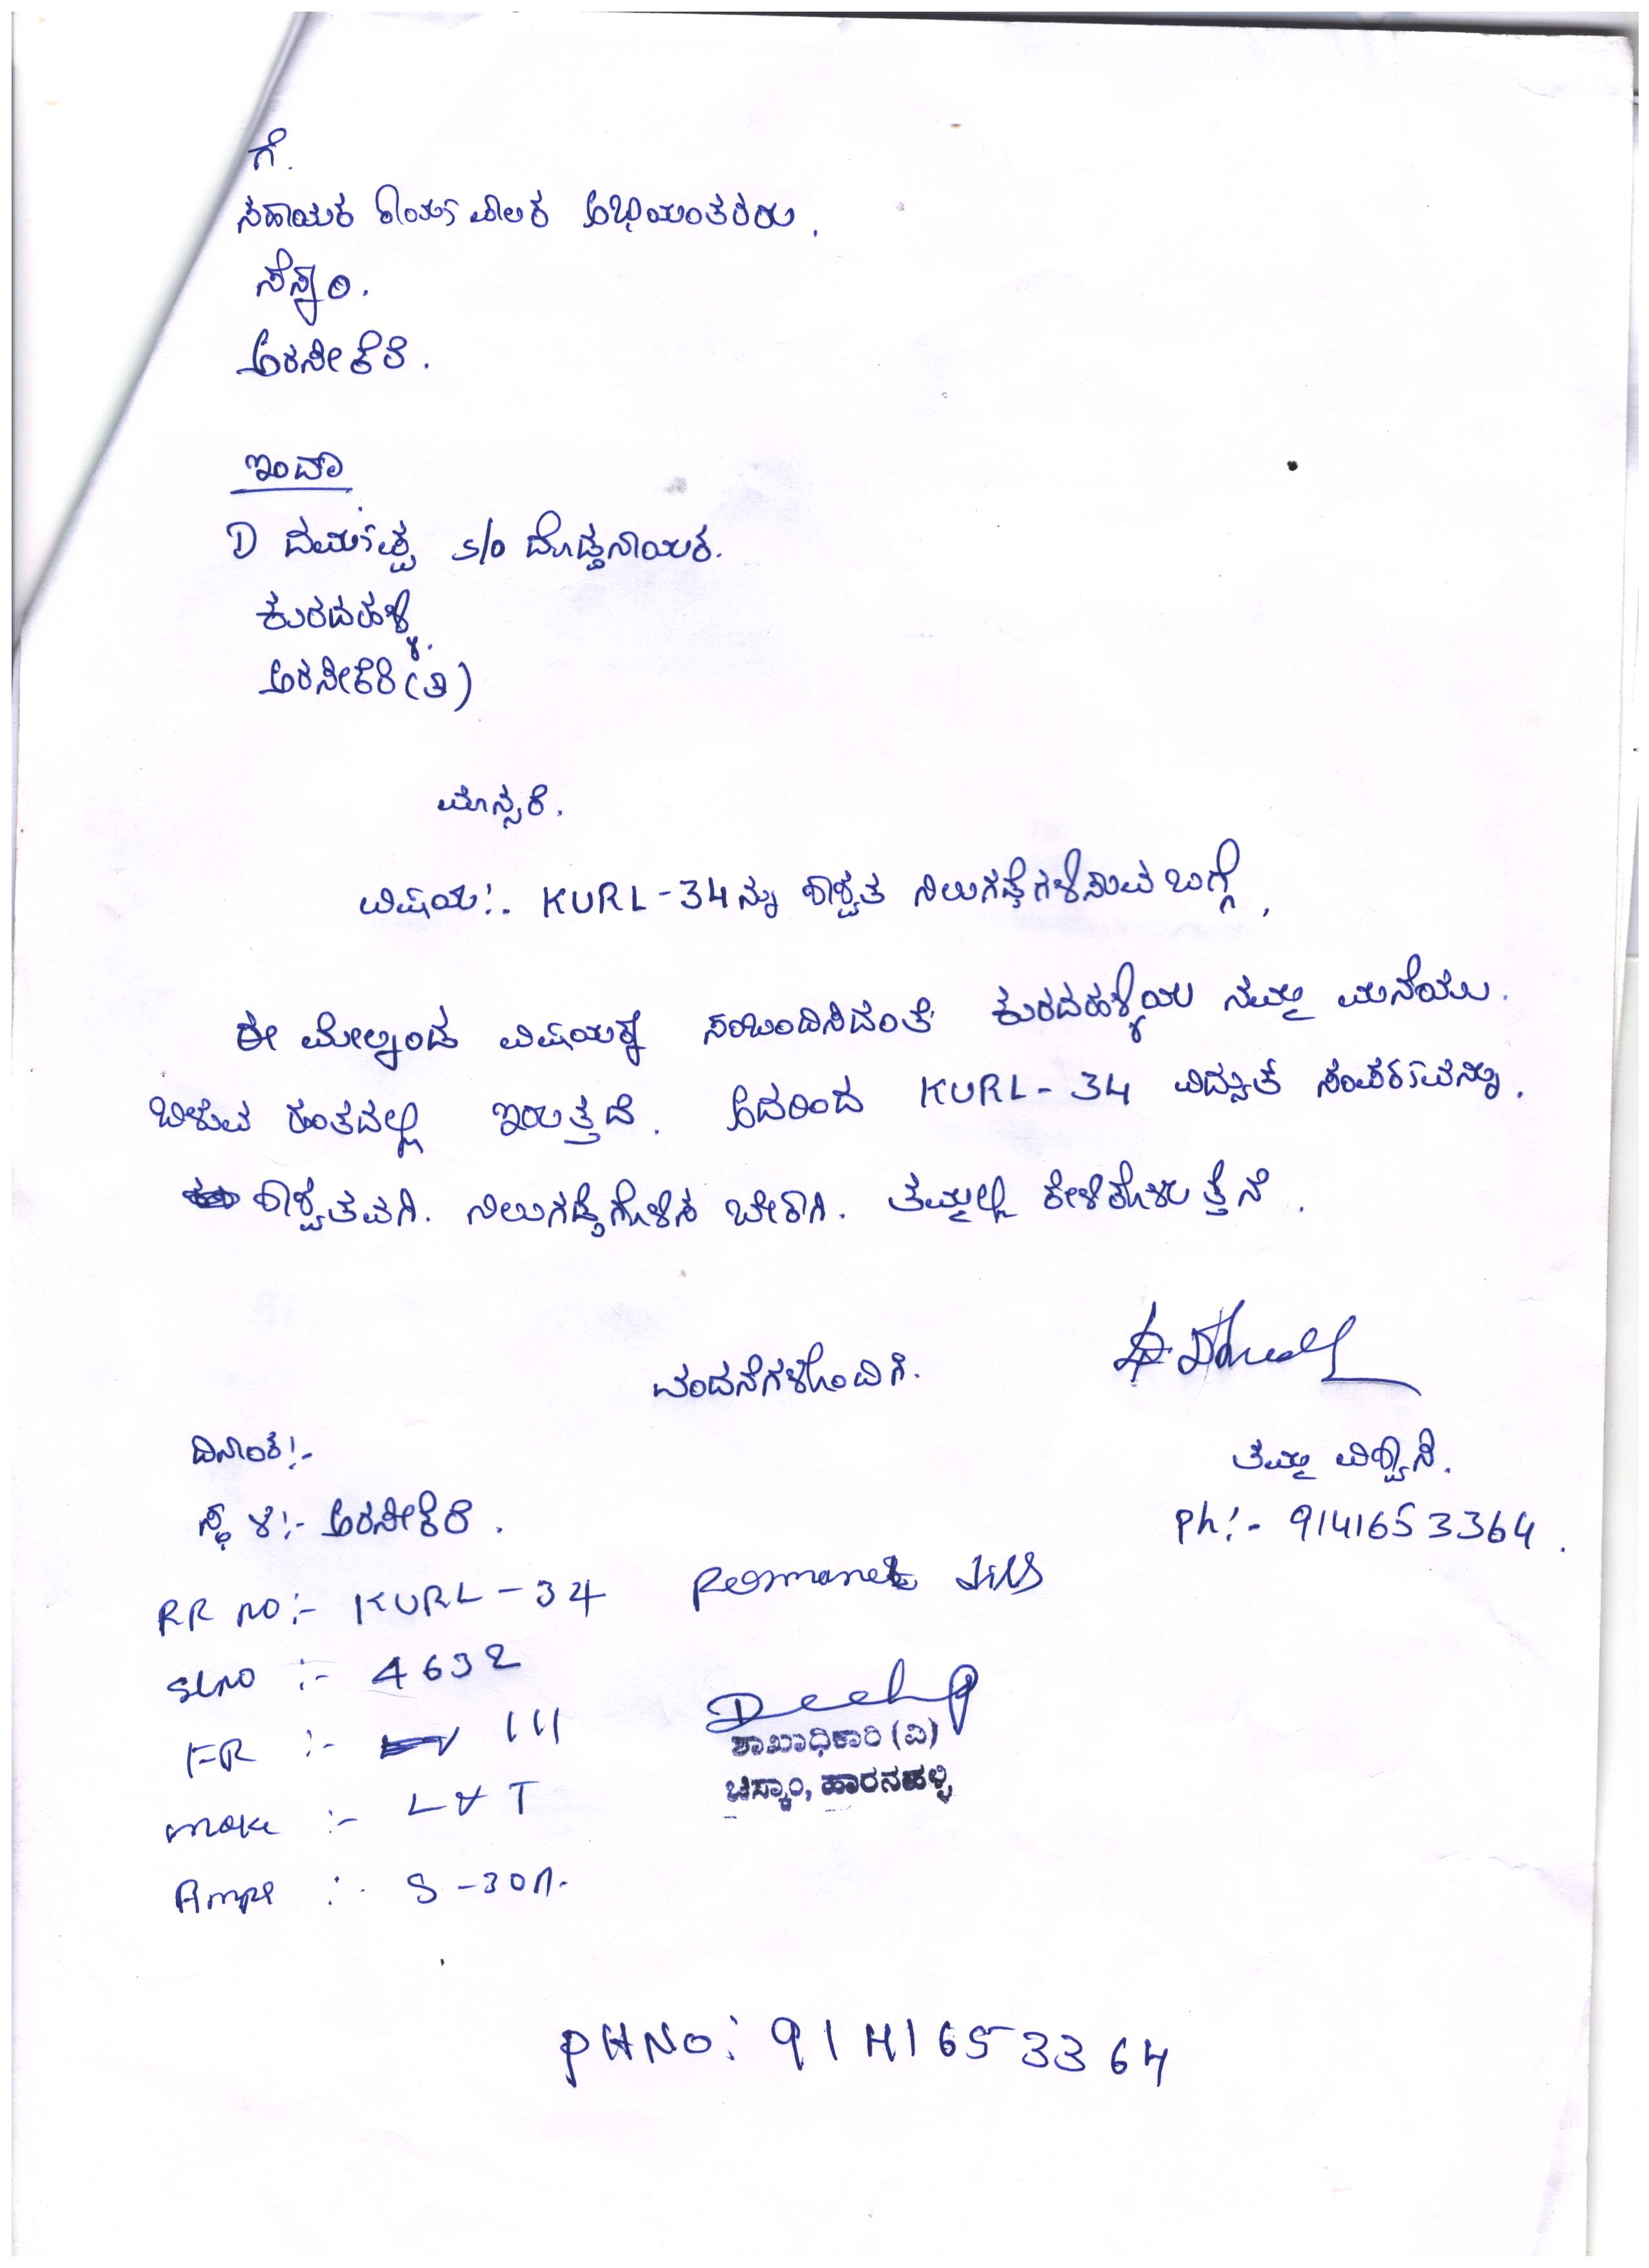 ಗೆ.
ಸಹಾಯಕ ಕಾರ್ಯಪಾಲಕ ಅಭಿಯಂತರರು.
ಸೆಸ್ಕಾಂ.
ಅರಸೀಕೆರೆ.
ಇಂದಾ
D ದರ್ಮಪ್ಪ s/o ದೊಡ್ಡನಾಯಕ.
ಕುರದಹಳ್ಳಿ.
ಅರಸೀಕೆರೆ(ತಾ)
ಮಾನ್ಯರೆ.
ವಿಷಯ:. KURL-34ನ್ನು ಶಾಶ್ವತ ನಿಲುಗಡೆಗಳಿಸುವ ಬಗ್ಗೆ,
ಈ ಮೇಲ್ಕಂಡ ವಿಷಯಕ್ಕೆ ಸಂಬಂದಿಸಿದಂತೆ ಕುರದಹಳ್ಳಿಯ ನಮ್ಮ ಮನೆಯು.
ಬೀಳುವ ಹಂತದಲ್ಲಿ ಇರುತ್ತದೆ. ಅದರಿಂದ KURL-34 ವಿದ್ಯುತ ಸಂಪರ್ಕವನ್ನು.
ಶಾಶ್ವತವಗಿ. ನಿಲುಗಡೆಗೊಳಿಸ ಬೇಕಾಗಿ. ತಮ್ಮಲ್ಲಿ ಕೇಳಿಕೊಳುತ್ತೆನೆ.
ವಂದನೆಗಳೊಂದಿಗೆ.
ದಿನಾಂಕ:-
ತಮ್ಮ ವಿಶ್ವಾಸಿ.
ಸ್ಥಳ:- ಅರಸೀಕೆರೆ.
Ph:- 9141653364.
RR NO:- KURL-34 Permanet
SLNO :- 4632
FR :- 111
ಶಾಖಾಧಿಕಾರಿ (ವಿ)
make :- L&T
ಚೆಸ್ಕಾಂ, ಹಾರನಹಳ್ಳಿ
Amps :- 5-30A.
PHNO: 9141653364